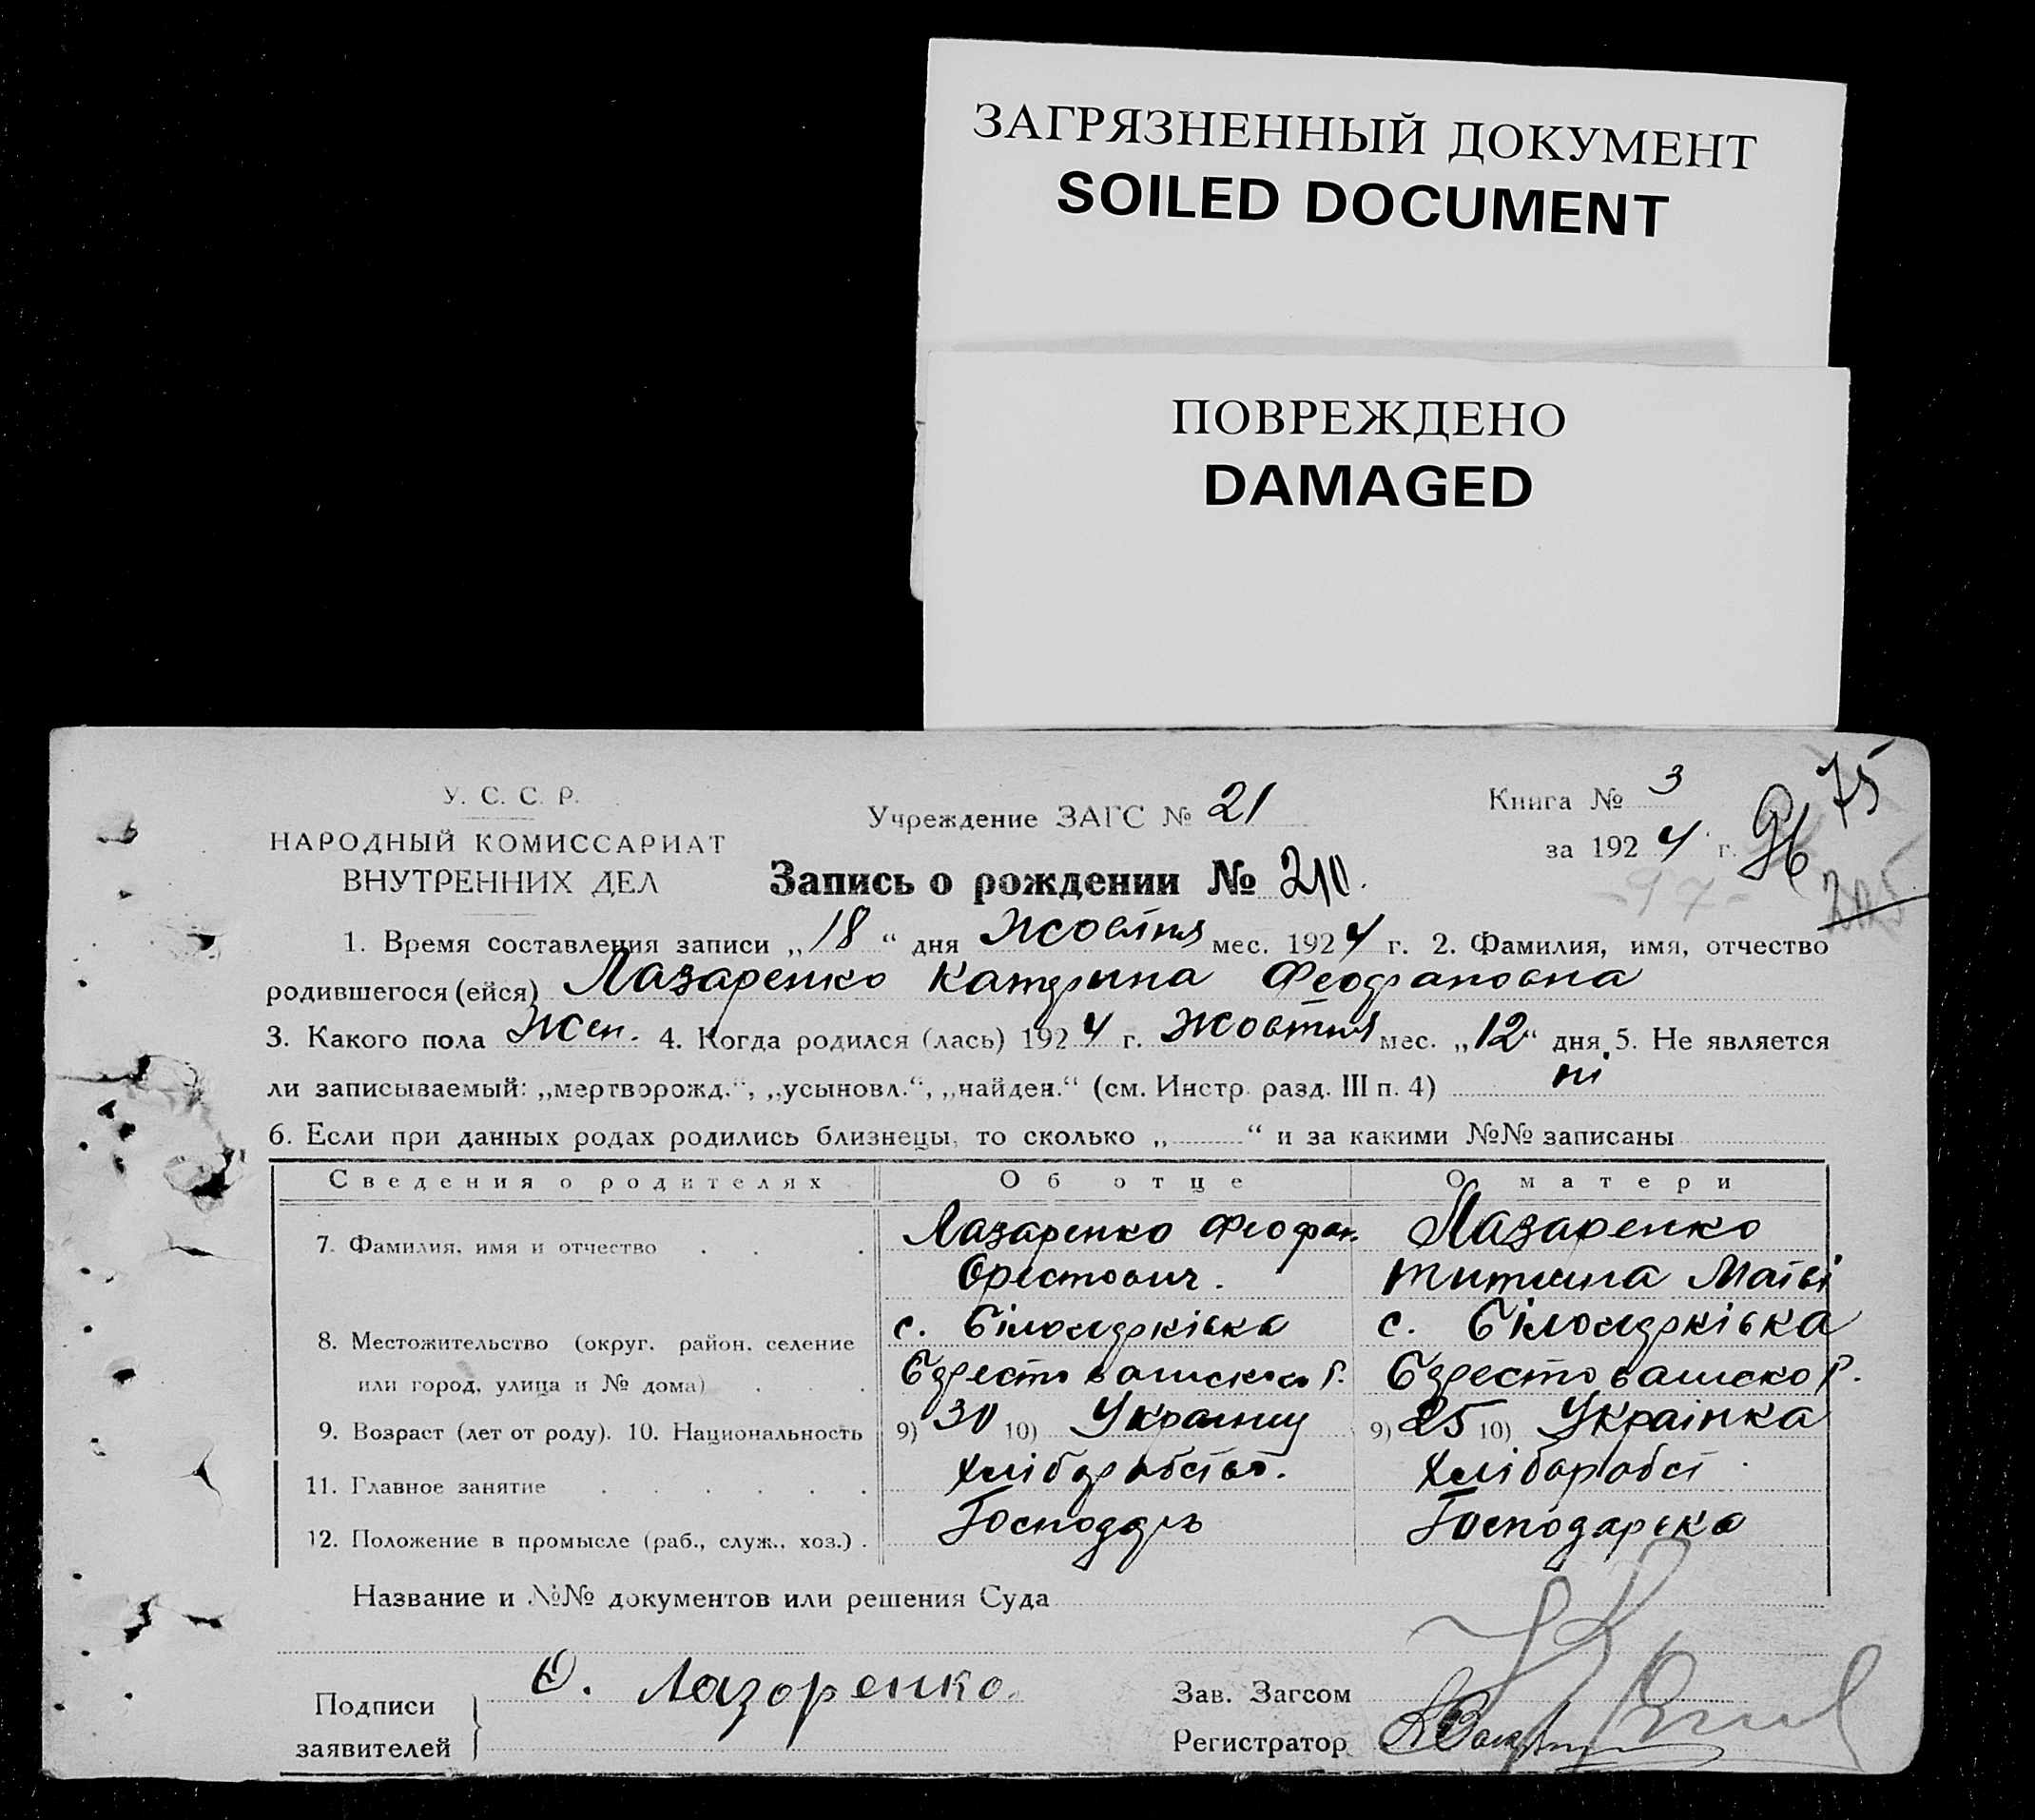 ЗАГРЯЗНЕННЫЙ ДОКУМЕНТ
SOILED DOCUMENT
ПОВРЕЖДЕНО
DAMAGED
75
У. С. С. Р.
НАРОДНЫЙ КОМИССАРИАТ
ВНУТРЕННИХ ДЕЛ
Учреждение ЗАГС № 21
Книга № 3
за 1924 г.
96
-97-
205
Запись о рождении № 210.
1. Время составления записи „18“ дня Жовтня мес. 1924 г. 2. Фамилия, имя, отчество
родившегося (ейся) Лазаренко Катерина Феофановна
3. Какого пола Жен. 4. Когда родился (лась) 1924 г. Жовтня мес. „12“ дня 5. Не является
ли записываемый: „мертворожд.“, „усыновл.“, „найден.“ (см. Инстр. разд. III п. 4) ні
6. Если при данных родах родились близнецы, то сколько „ “ и за какими №№ записаны
Сведения о родителях Об отце О матери
7. Фамилия, имя и отчество Лазаренко Феофан Лазаренко
Орестович. Матві
8. Местожительство (округ, район, селение с. с.
или город, улица и № дома)
9. Возраст (лет от роду). 10. Национальность 9) 30 10) Украинц 9) 25 10) Українка
11. Главное занятие Хліборобство. Хліборобст
12. Положение в промысле (раб., служ., хоз.) Господарь Господарка
Название и №№ документов или решения Суда
Подписи
заявителей
О. Лазоренко
Зав. Загсом
Регистратор